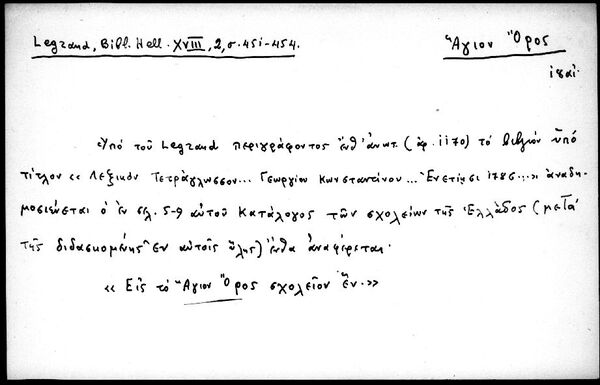 Legrand, Bibl. Hell. XVIII, 2, σ. 451-454.
Ἅγιον Ὄρος
«Ὑπὸ τοῦ Legrand περιγράφοντος ἔνθ' ἀνωτ. (ἀρ. 1170) τὸ βιβλίον ὑπὸ
τίτλον «Λεξικὸν Τετράγλωσσον... Γεωργίου Κωνσταντίνου... Ἐνετίῃσι 1786...» ἀναδη-
μοσιεύεται ὁ ἐν σελ. 5-9 αὐτοῦ Κατάλογος τῶν σχολείων τῆς Ἑλλάδος (μετὰ
τῆς διδασκομένης ἐν αὐτοῖς ὕλης) ἔνθα ἀναφέρεται.
«Εἰς τὸ Ἅγιον Ὄρος σχολεῖον ἕν.»